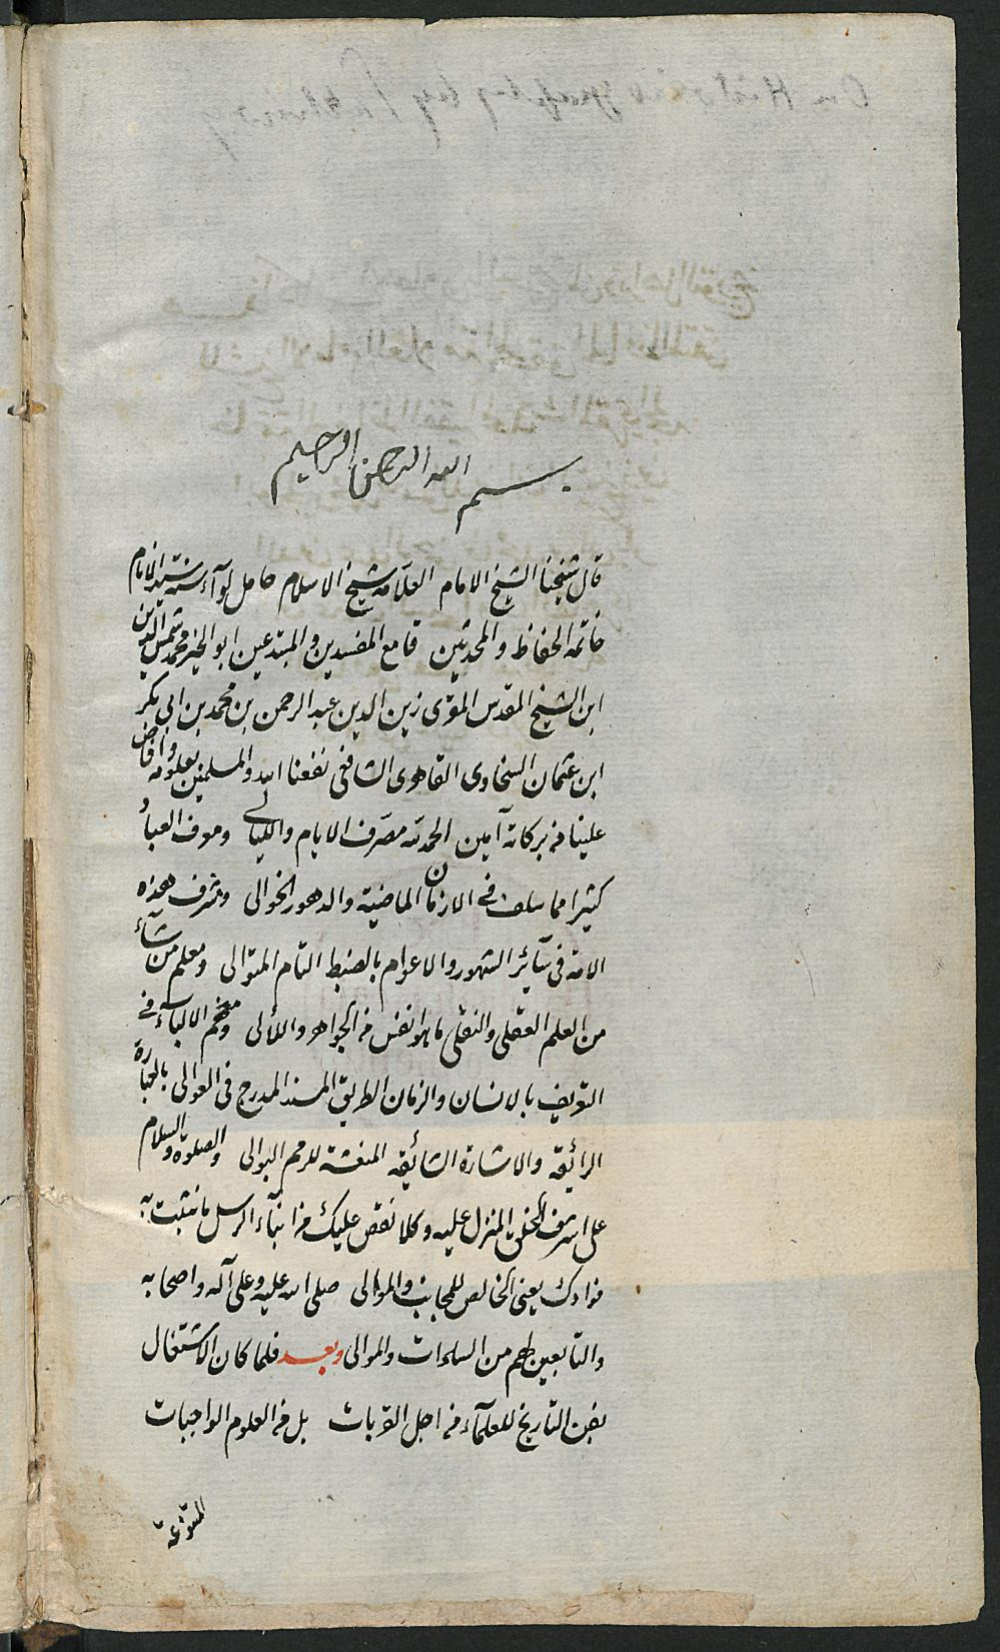 بسم الله الرحمن الرحيم
قال شيخنا الشيخ الامام العلامة شيخ الاسلام حامل لوآء سنة سيد الانام
خاتمة الحفاظ والمحدثين قامع المفسدين والمبتدعين ابو الخير محمد شمس الدين
ابن الشيخ المقدس المقرى زين الدين عبد الرحمن بن محمد بن ابى بكر
ابن عثمان السخاوى القاهرى الشافعى نفعنا الله والمسلمين بعلومه وافاض
علينا من بركاته آمين الحمد لله مصرف الايام والليالى ومعرف العباد
كثيرا مما سلف فى الازمان الماضية والدهور الخوالى ومشرف هذه
الامة فى سآئر الشهور والاعوام بالضبط التام المتوالى ومعلم من شآء
من العلم العقلى والنقلى ما هو انفس من الجواهر واللآلى ومفهم الالبآء فى
التعريف بالانسان والزمان الطريق المسند المدرج فى العوالى بالعبارة
الرائقة والاشارة الشائقة المنعشة للرمم البوالى والصلوة والسلام
على اشرف الخلق المنزل عليه وكلا نقص عليك من انبآء الرسل ما نثبت به
فؤادك يعنى الخالص للمجانب والموالى صلى الله عليه وعلى آله واصحابه
والتابعين لهم من السادات والموالى وبعد فلما كان الاشتغال
بفن التاريخ للعلمآء من اجل القربات بل من العلوم الواجبات
المتنوعة